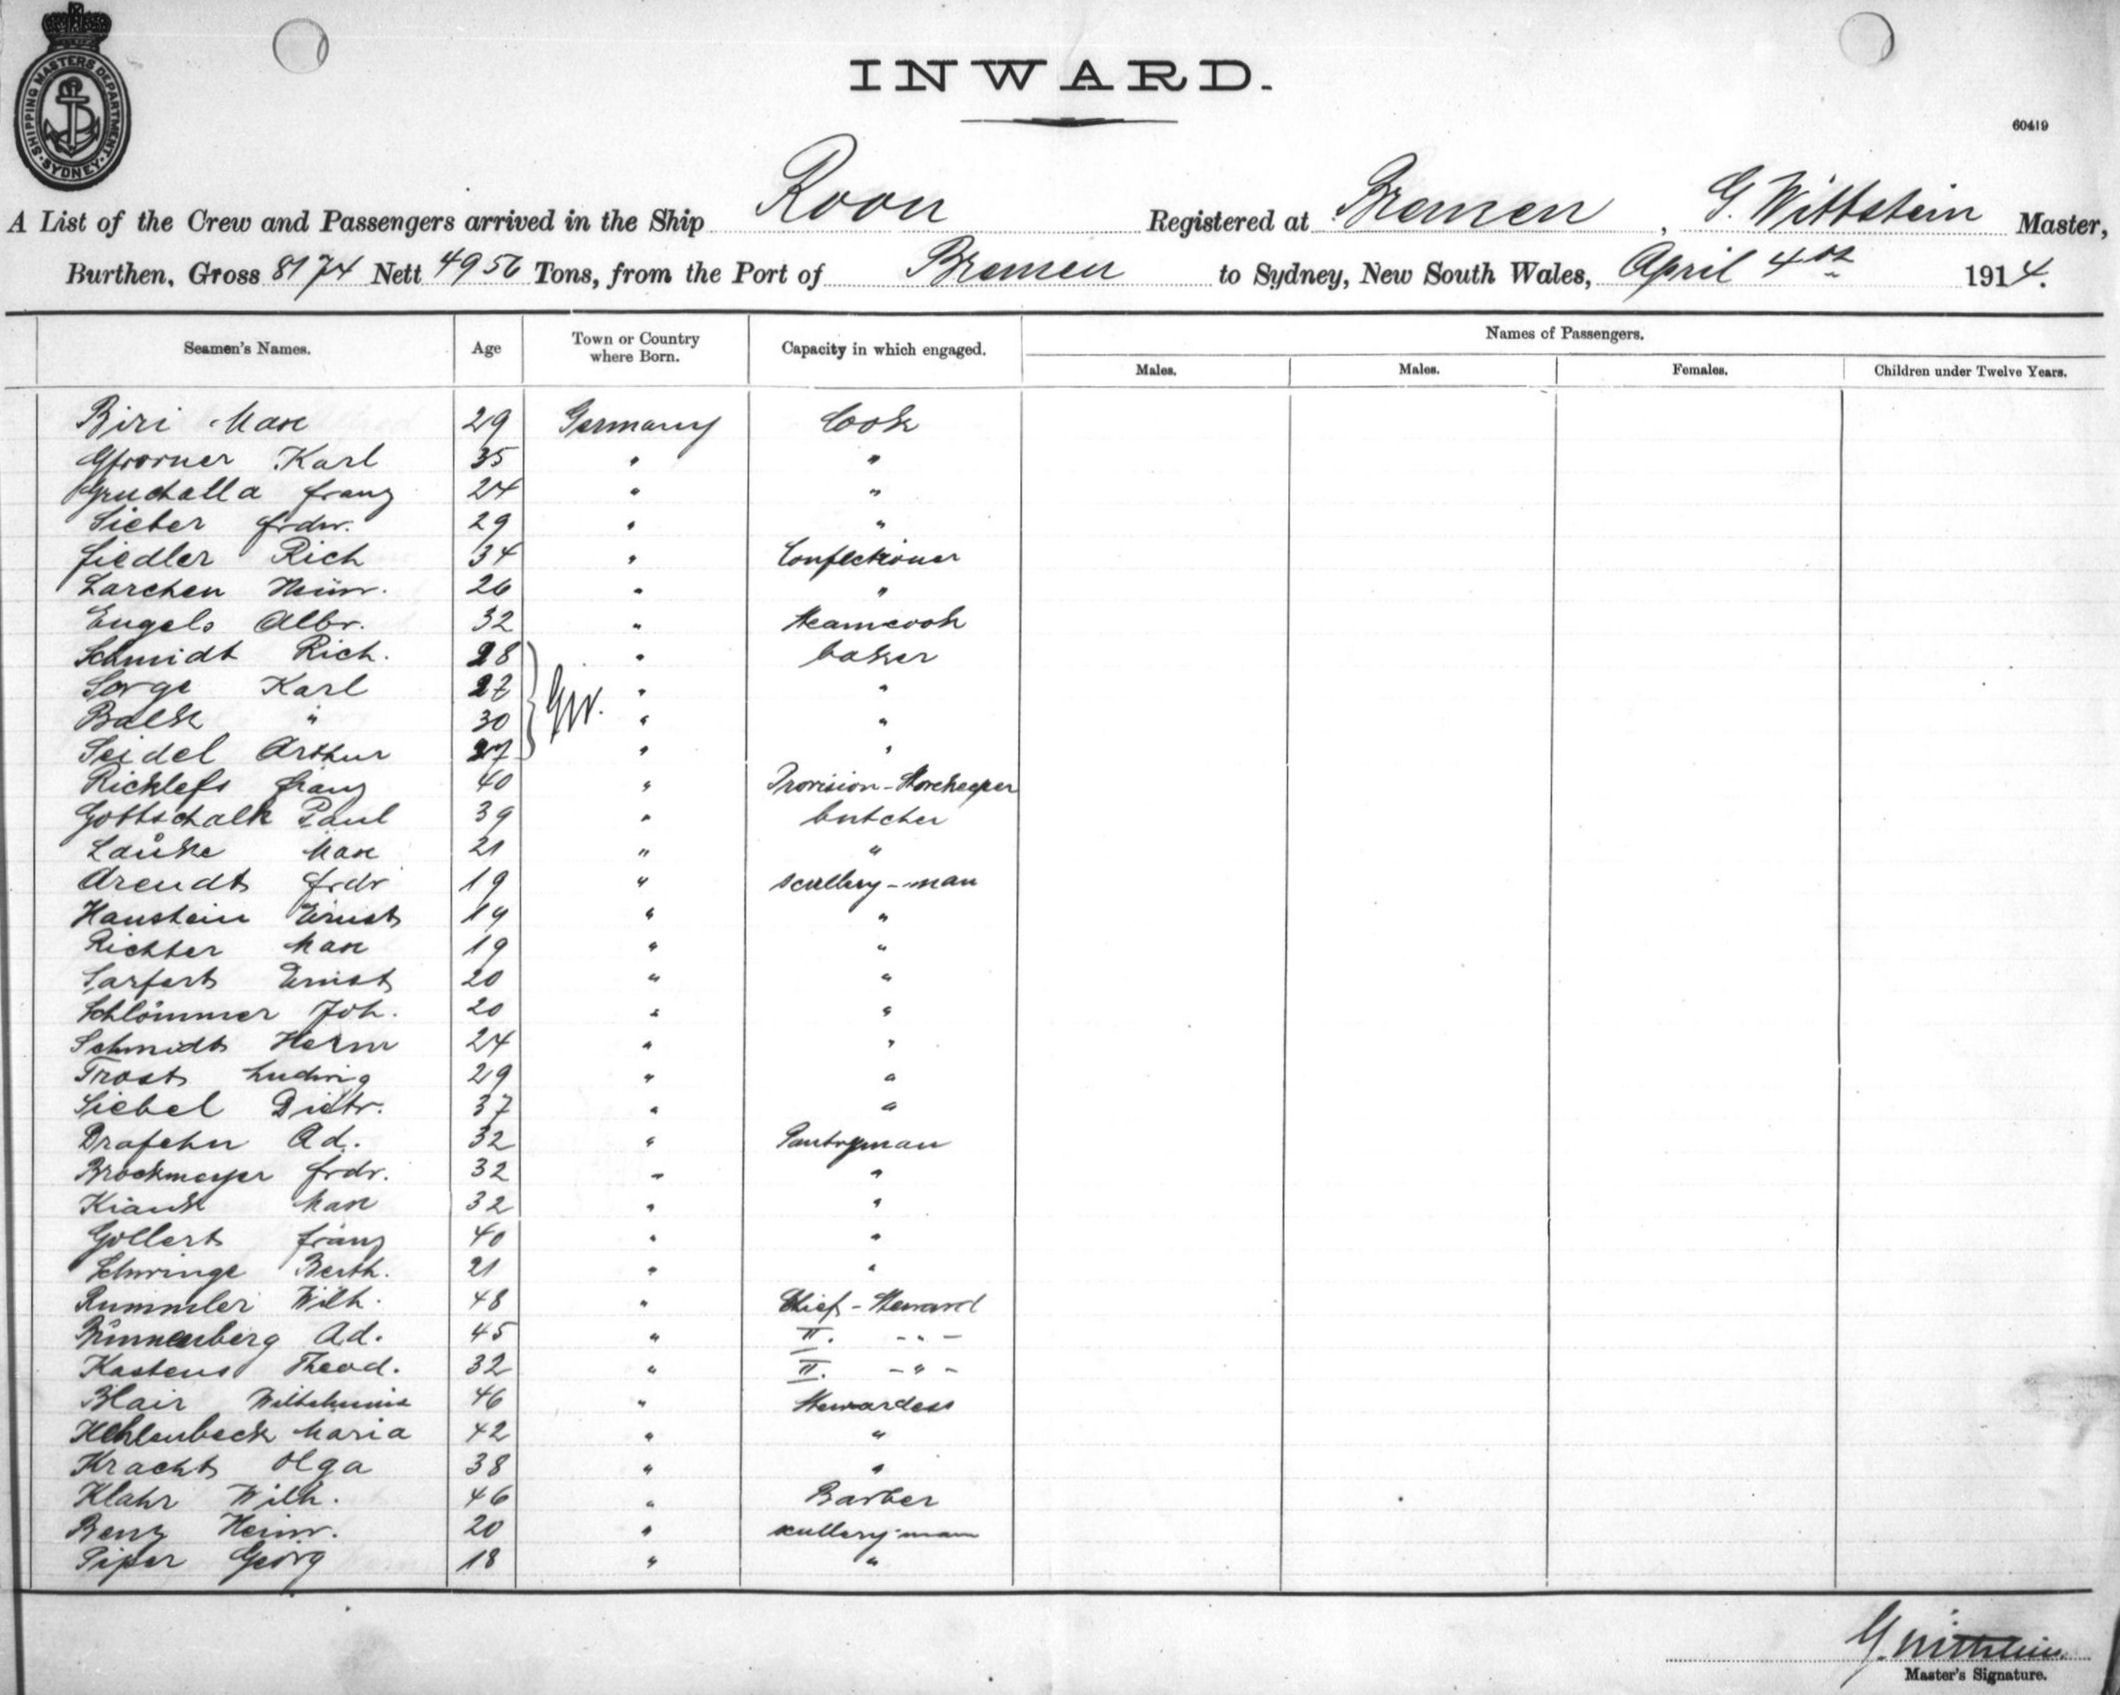 SHIPPING MASTERS DEPARTMENT
SYDNEY
INWARD.
60419
A List of the Crew and Passengers arrived in the Ship Roon Registered at Bremen, G. Wittstein Master,
Burthen, Gross 8174 Nett 4956 Tons, from the Port of Bremen to Sydney, New South Wales, April 4th 1914.
Seamen's Names. Age Town or Country where Born. Capacity in which engaged. Names of Passengers.
Males. Males. Females. Children under Twelve Years.
Biri Max 29 Germany Cook
Gfrorner Karl 35 " "
Gruchalla Franz 24 " "
Sieber Frdr. 29 " "
Fiedler Rich 34 " Confectioner
Larchen Heinr. 26 " "
Engels Albr. 32 " Steamcook
Schmidt Rich. 28 " baker
Sorge Karl 27 GW. " "
Balk " 30 " "
Seidel Arthur 27 " "
Ricklefs Franz 40 " Provision-Storekeeper
Gottschalk Paul 39 " butcher
Lauske Max 21 " "
Arendt Frdr 19 " scullery-man
Haustein Ernst 19 " "
Richter Max 19 " "
Sarfert Ernst 20 " "
Schlömmer Joh. 20 " "
Schmidt Herm 24 " "
Trost Ludwig 29 " "
Siebel Dietr. 37 " "
Drafehn Ad. 32 " Pantryman
Brockmeyer Frdr. 32 " "
Kiank Max 32 " "
Gollert Franz 40 " "
Schwinge Berth. 21 " "
Rummler Wilh. 48 " Chief-Steward
Ad. 45 " II. - " -
Kastens Theod. 32 " II. - " -
Blair Wilhelmine 46 " Stewardess
Maria 42 " "
Kracht Olga 38 " "
Klahr Wilh. 46 " Barber
Benz Heinr. 20 " scullery-man
Piper Georg 18 " "
G. Wittstein.
Master's Signature.